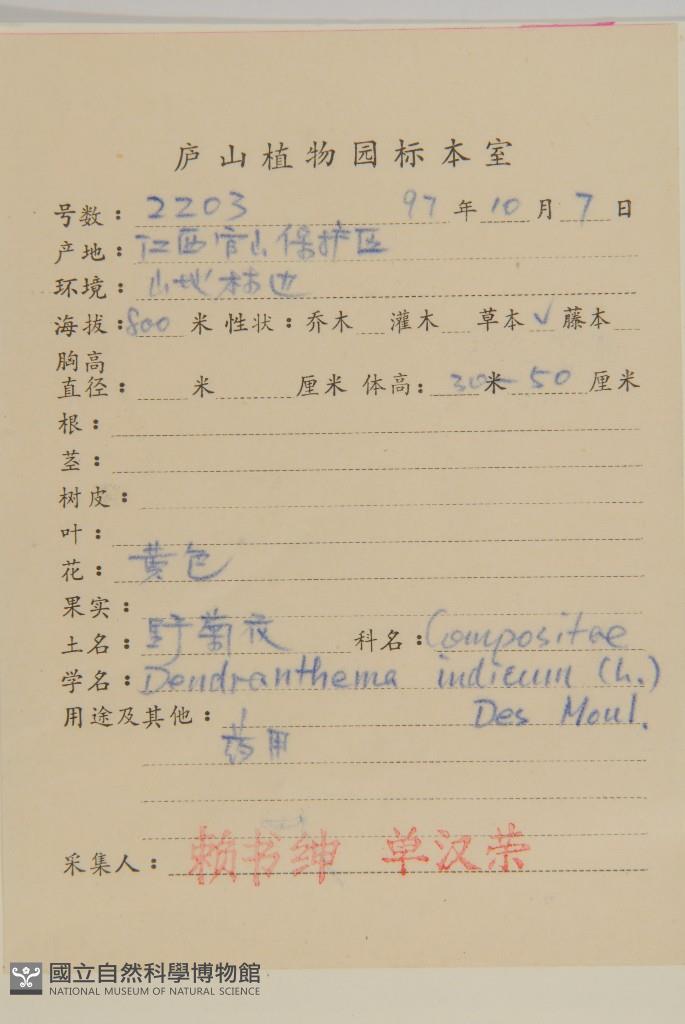 庐山植物园标本室
号数：2203 97年10月7日
产地：江西官山保护区
环境：山地林边
海拔：800米 性状：乔木 灌木 草本√藤本
胸高
直径： 米 厘米 体高：30米-50厘米
根：
茎：
树皮：
叶：
花：黄色
果实：
土名：野菊花 科名：Compositae
学名：Dendranthema indicum (L.)
Des Moul.
用途及其他：
药用
采集人：赖书绅 单汉荣
國立自然科學博物館
NATIONAL MUSEUM OF NATURAL SCIENCE